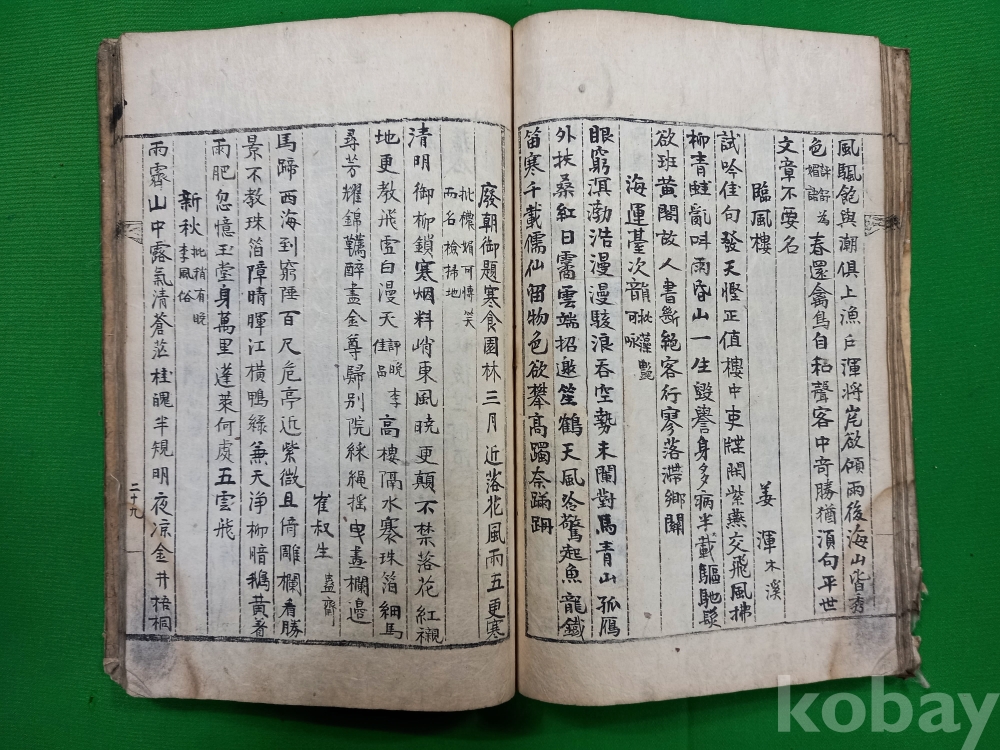 風颿飽與潮俱上漁戶渾將岸欲傾雨後海山皆秀
色 許訝爲媚語 春還禽鳥自和聲客中奇勝猶須句平世
文章不要名
臨風樓
姜渾 木溪
試吟佳句發天慳正值樓中吏牒閑紫燕交飛風拂
柳青蛙亂叫雨昏山一生毀譽身多病半載驅馳鬂
欲班黃閣故人書斷絕客行寥落滯鄕關
海運臺次韻 批藻艷可咏
眼窮溟渤浩漫漫駭浪呑空勢未闌對馬青山孤鴈
外扶桑紅日靄雲端招邀笙鶴天風冷驚起魚龍鐵
笛寒千載儒仙留物色欲攀高躅奈蹣跚
廢朝御題寒食園林三月近落花風雨五更寒
批穠媚可愽笑 而名檢掃地
淸明御柳鎖寒烟料峭東風曉更顚不禁落花紅襯
地更敎飛虛白漫天 評晩李佳品 高樓隔水褰珠箔細馬
尋芳耀錦韉醉盡金尊歸別院綵繩搖曳畫欄邊
崔叔生 盎齋
馬蹄西海到窮陲百尺危亭近紫微且倚雕欄看勝
景不敎珠箔障晴暉江橫鴨綠兼天淨柳暗鵝黃着
雨肥忽憶玉堂身萬里蓬萊何處五雲飛
新秋 批稍有晩李風俗
雨霽山中露氣淸蒼茫桂魄半規明夜凉金井梧桐
二十九
kobay